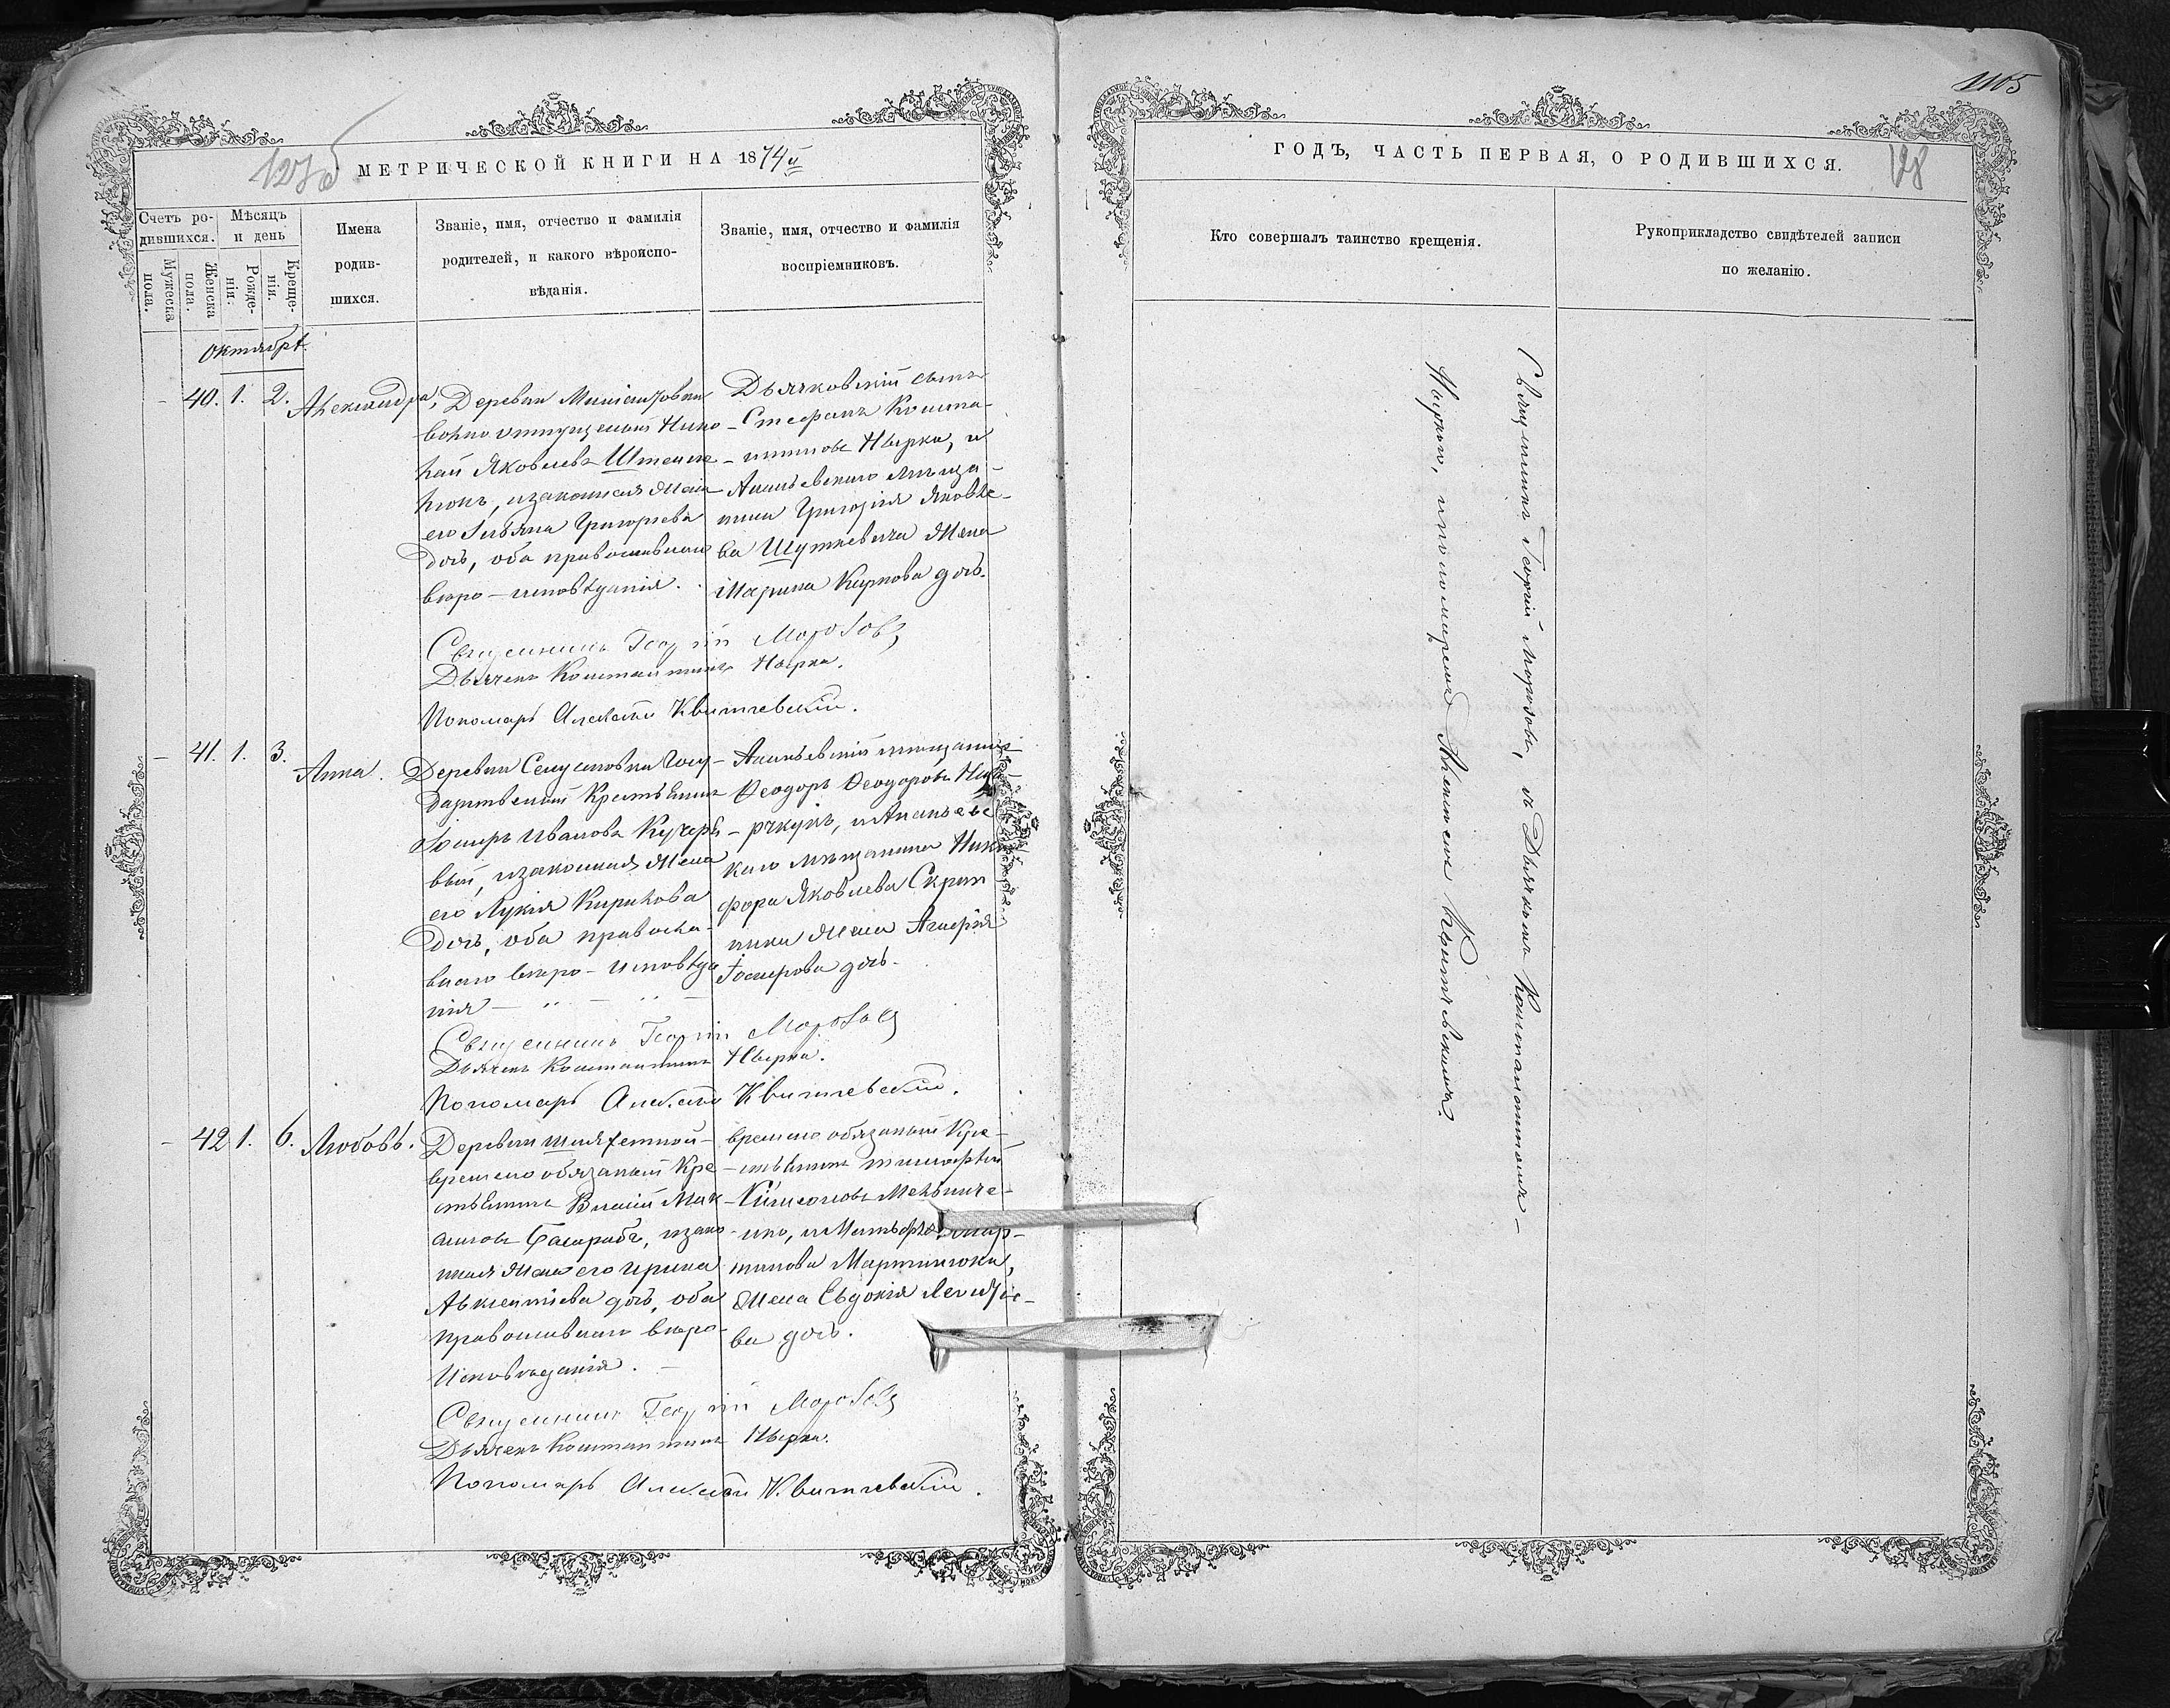 127 об
МЕТРИЧЕСКОЙ КНИГИ НА 1874й
Счетъ ро-
дившихся.
Мужеска
пола.
Женска
пола.
Мѣсяцъ
и день
Рожде-
нія.
Креще-
нія.
Имена
родив-
шихся.
Званіе, имя, отчество и фамилія
родителей, и какого вѣроиспо-
вѣданія.
Званіе, имя, отчество и фамилія
воспріемниковъ.
Октябрь.
40. 1. 2. Александра,
Деревни
вольно отпущенный Нико-
лай Яковлевъ
люкъ, и законная жена
его Григорьева
дочь, оба православнаго
вѣро-исповѣданія.
Дьячковскій сынъ
Стефанъ Конста-
нтиновъ Нырка, и
Ананьевскаго мѣща-
нина Григорія Яковле-
ва Шуткевича жена
Марина Карпова дочь.
Священникъ Георгій Морозовъ
Дьячекъ Константинъ Нырка.
Пономарь Алексѣй Квитчевскій.
41. 1. 3. Анна.
Деревни Госу-
дарственный Крестьянинъ
Іосифъ Ивановъ Кучеря-
вый, и законная жена
его Лукія Кирилова
дочь, оба правосла-
внаго вѣро-исповѣда
нія
Ананьевскій мѣщанинъ
Ѳеодоръ Ѳеодоровъ
и Ананьевс
каго мѣщанина Ники
фора Яковлева Скрип
ника жена
Іосифова дочь.
Священникъ Георгій Морозовъ
Дьячекъ Константинъ Нырка.
Пономарь Алексѣй Квитчевскій.
42 1. 6. Любовь.
Деревни Шляхетной
временно обязанный Кре-
стьянинъ Василій Мак-
симовъ и зако-
нная жена его Ирина
Авксентіева дочь, оба
православнаго вѣро-
Исповѣданія.
временно обязанный Кре-
стьянинъ Тимофей
Мельниче-
нко, и Матвѣя Мар-
тинова Мартинюка,
жена Евдокія
ва дочь.
Священникъ Георгій Морозовъ
Дьячекъ Константинъ Нырка.
Пономарь Алексѣй Квитчевскій.
1105
ГОДЪ, ЧАСТЬ ПЕРВАЯ, О РОДИВШИХСЯ.
128
Кто совершалъ таинство крещенія.
Рукоприкладство свидѣтелей записи
по желанію.
Священникъ Георгій Морозовъ, съ Дьячкомъ Константиномъ
Ныркою, и пономаремъ Алексѣемъ Квитчевскимъ.